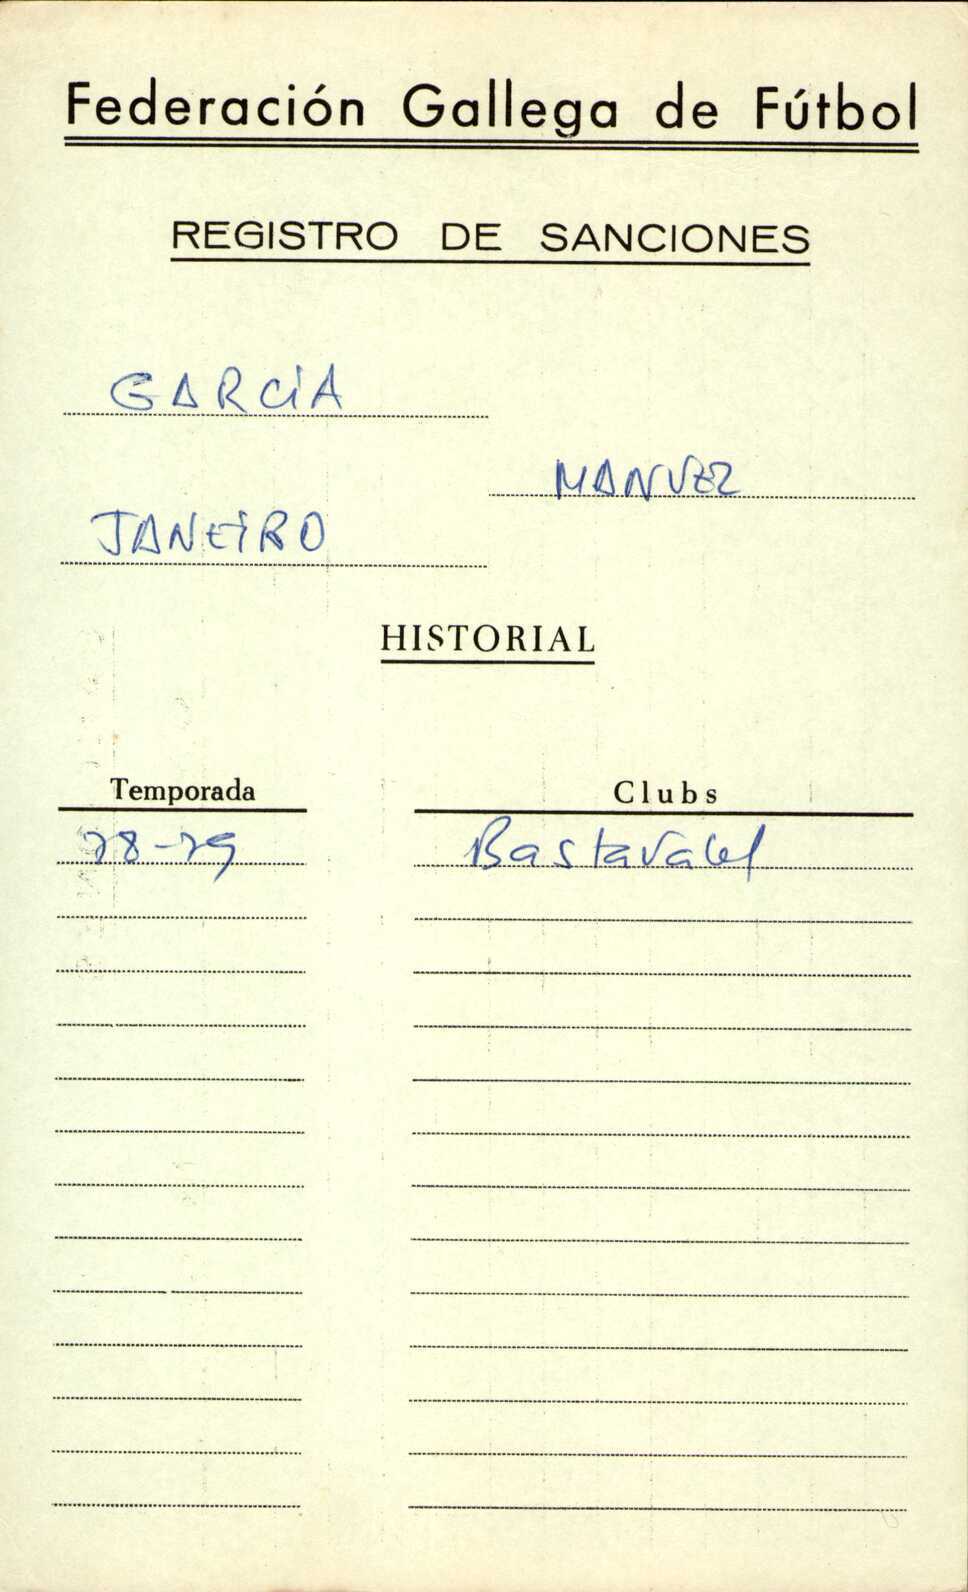 Federación Gallega de Fútbol
REGISTRO DE SANCIONES
GARCIA
MANUEL
JANEIRO
HISTORIAL
Temporada Clubs
78-79 Bastavales